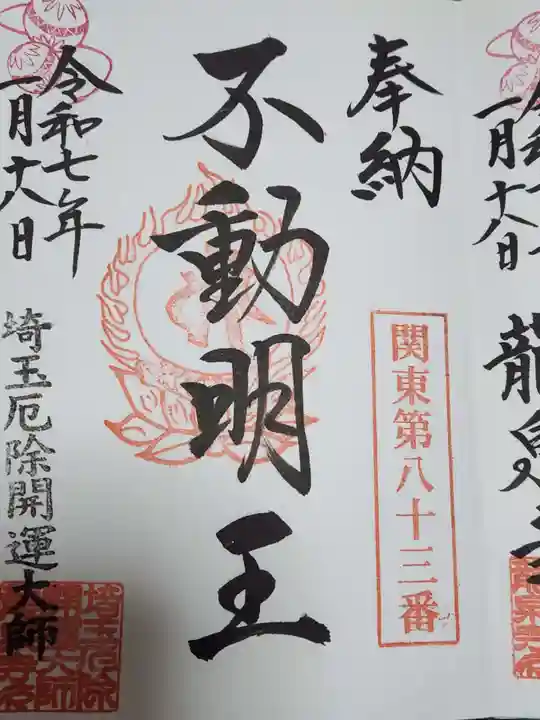 一月十八日
奉納
関東第八十三番
不動明王
令和七年
一月十八日
埼玉厄除開運大師